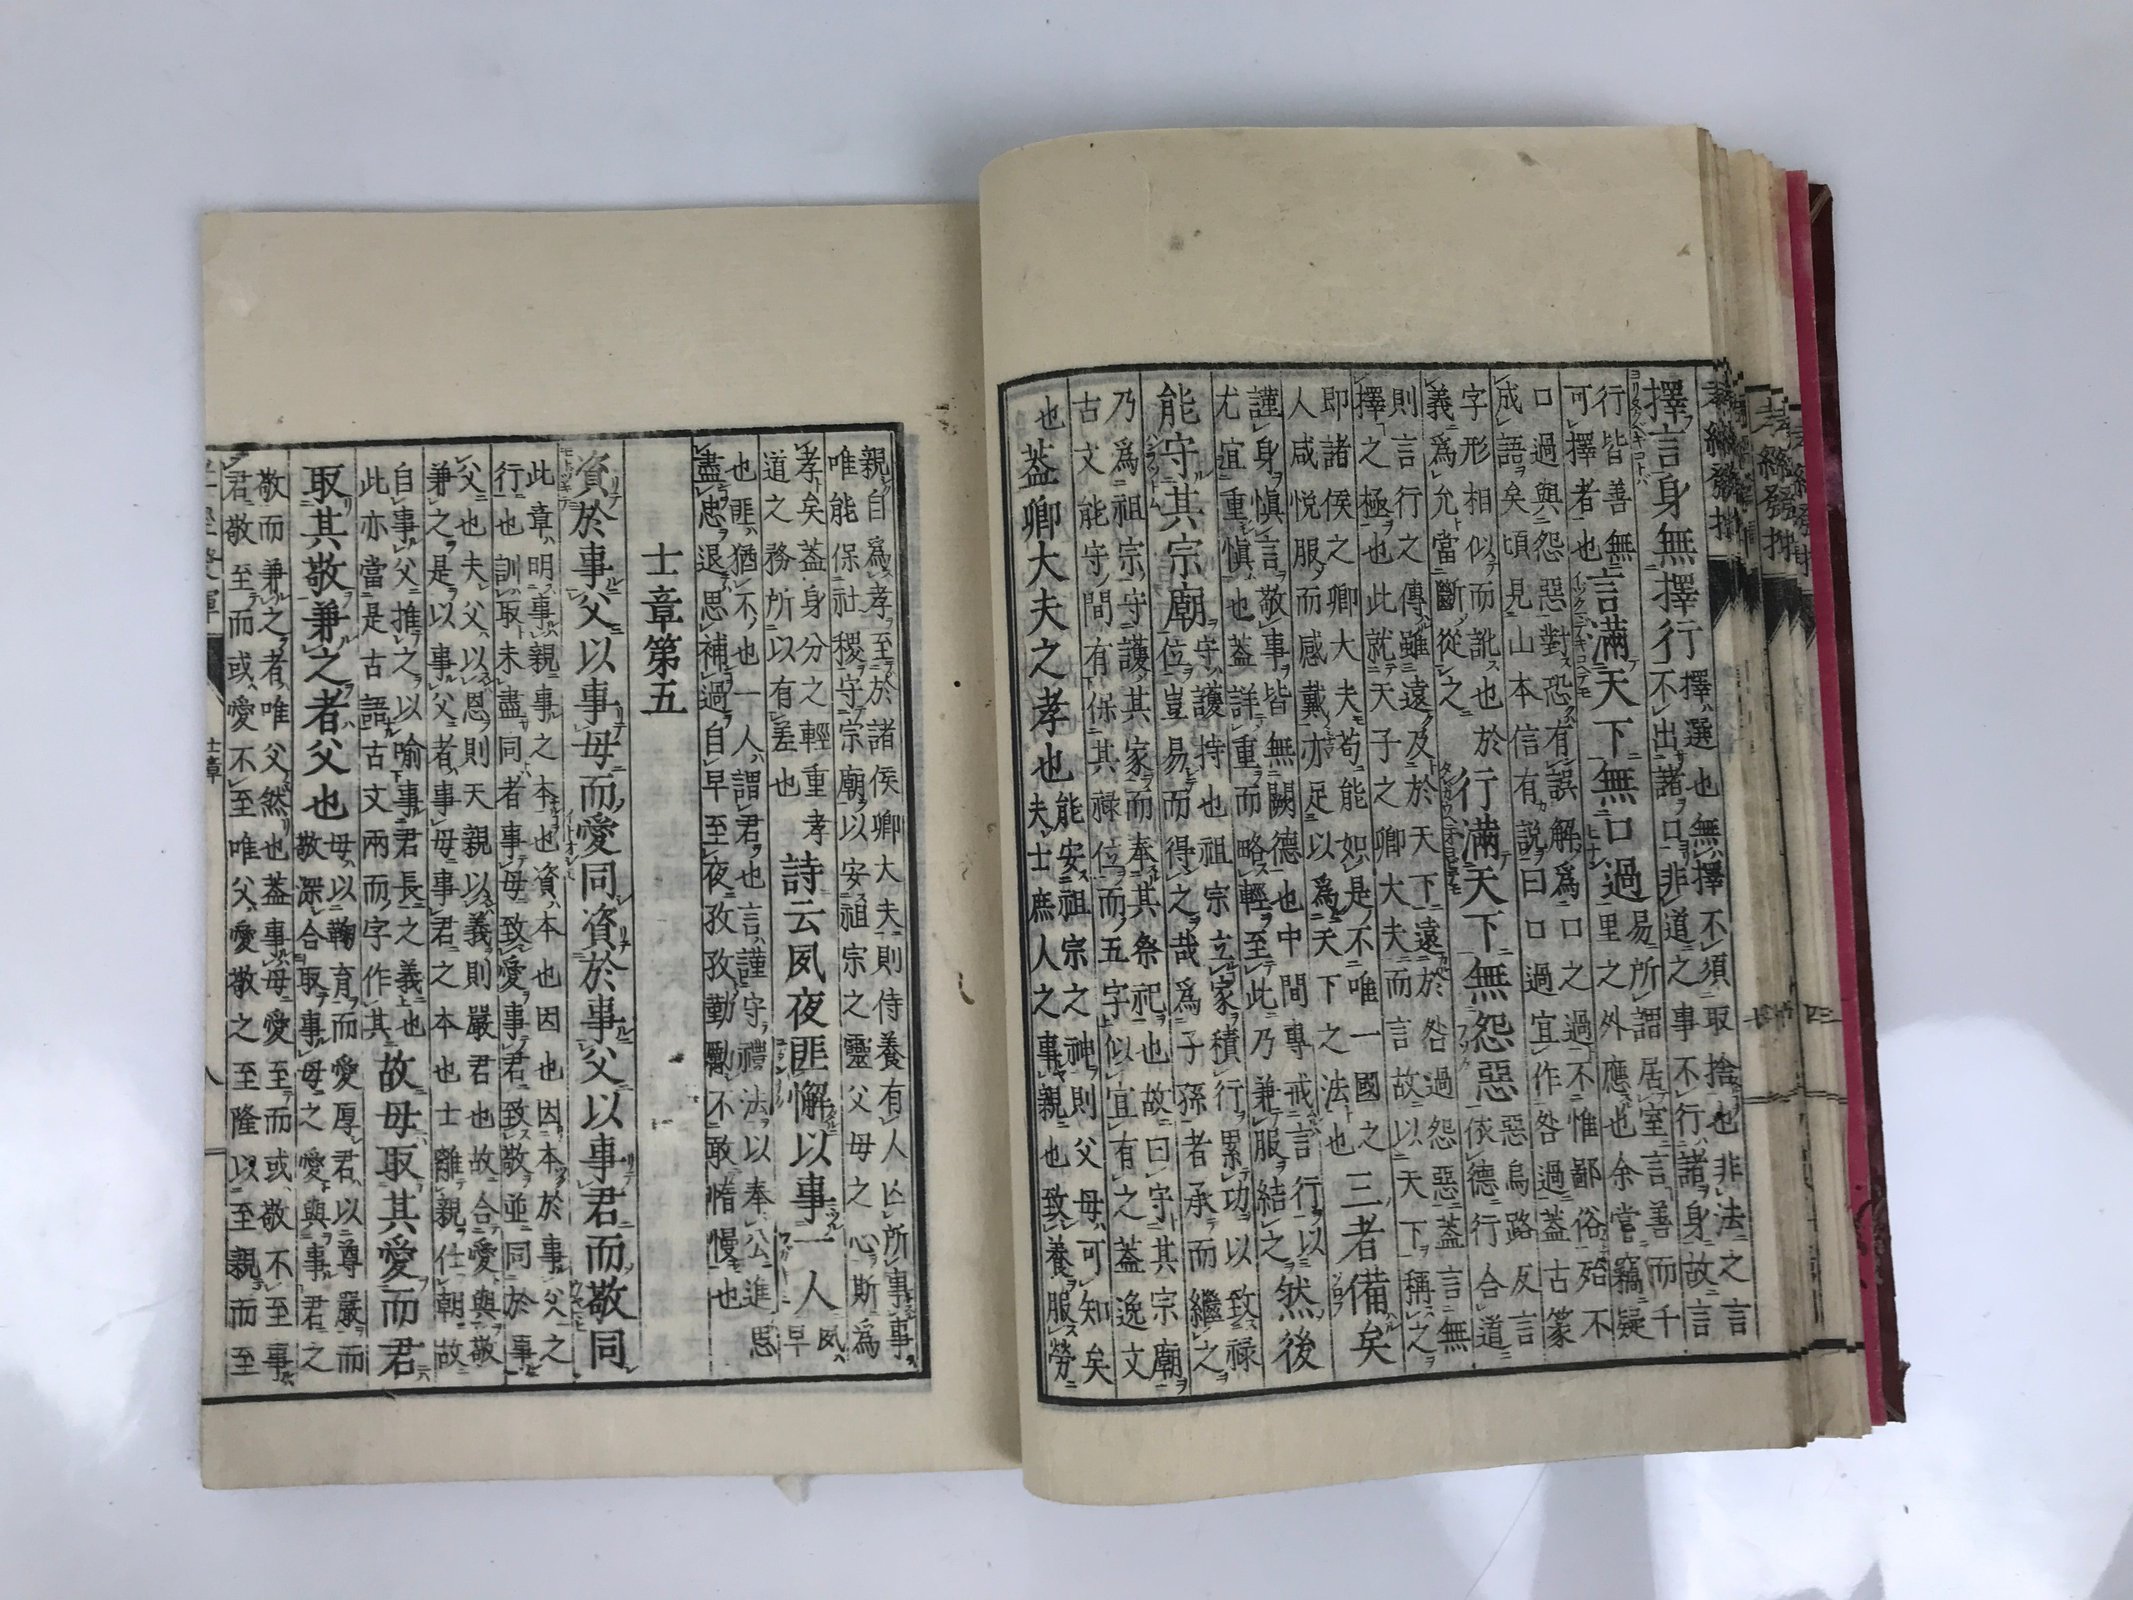 孝經發揮
擇言身無擇行
擇選也無擇不須取捨也非法之言
不出諸口非道之事不行諸身故言
行皆善無
可擇者也
言滿天下無口過
易所謂居室言善而千
里之外應也余嘗竊疑
口過與怨惡對恐有誤解爲口之過不惟鄙俗殆不
成語矣頃見山本信有説曰口過宜作咎過蓋古篆
字形相似而訛也於
義爲允當斷從之
行滿天下無怨惡
惡烏路反言
依德行合道
則言行之傳雖遠及於天下遠於咎過怨惡蓋言無
擇之極也此就天子之卿大夫而言故以天下稱之
即諸侯之卿大夫苟能如是不唯一國之
人咸悦服而感戴亦足以爲天下之法也
三者備矣
謹身愼言敬事皆無闕德也中間專戒言行以
尤宜重愼也蓋詳重而略輕至此乃兼服結之
然後
能守其宗廟
守護持也祖宗立家積行累功以致祿
位豈易而得之哉爲子孫者承而繼之
乃爲祖宗守護其家而奉其祭祀也故曰守其宗廟
古文能守間有保其祿位而五字似宜有之蓋逸文
也
蓋卿大夫之孝也
能安祖宗之神則父母可知矣
夫士庶人之事親也致養服勞
親自爲孝至於諸侯卿大夫則侍養有人亡所事事
唯能保社稷守宗廟以安祖宗之靈父母之心斯爲
孝矣蓋身分之輕重孝
道之務所以有差也
詩云夙夜匪懈以事一人
夙
早
也匪猶不也一人謂君也言謹守禮法以奉公進思
盡忠退思補過自早至夜孜孜勤勵不敢惰慢也
士章第五
資於事父以事母而愛同資於事父以事君而敬同
此章明事親事之本也資本也因也因本於事父之
行也訓取未盡同者事母致愛事君致敬並同於事
父也夫父以恩則天親以義則嚴君也故合愛與敬
兼之是以事父者事母事君之本也士離親仕朝故
自事父推之以喻事君長之義也
此亦當是古語古文兩而字作其
故母取其愛而君
取其敬兼之者父也
母以鞠育而愛厚君以尊嚴而
敬深合取事母之愛與事君之
敬而兼之者唯父然也蓋事母愛至而或敬不至事
君敬至而或愛不至唯父愛敬之至隆以至親而至
士章
八